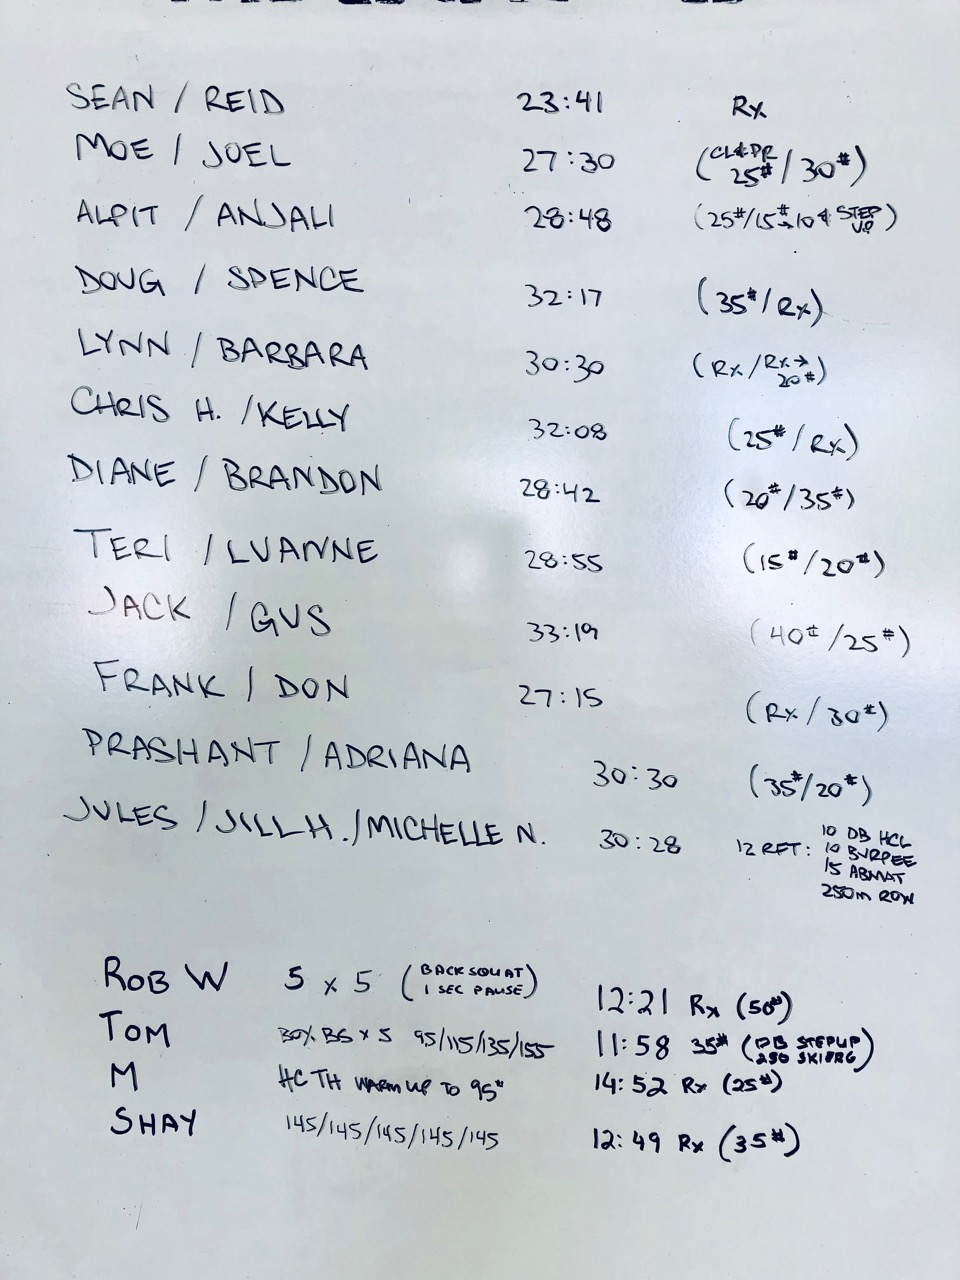 SEAN / REID 23:41 Rx
MOE / JOEL 27:30 (CL&PR 25# / 30#)
ALPIT / ANJALI 28:48 (25#/15# 10# STEP UP)
DOUG / SPENCE 32:17 (35#/Rx)
LYNN / BARBARA 30:30 (Rx/Rx→20#)
CHRIS H. /KELLY 32:08 (25#/Rx)
DIANE / BRANDON 28:42 (20#/35#)
TERI / LUANNE 28:55 (15#/20#)
JACK / GUS 33:19 (40#/25#)
FRANK / DON 27:15 (Rx/30#)
PRASHANT / ADRIANA 30:30 (35#/20#)
JULES / JILL H. / MICHELLE N. 30:28 12 RFT: 10 DB HCL
10 BURPEE
15 ABMAT
250m ROW
ROB W 5 x 5 (BACK SQUAT 1 SEC PAUSE) 12:21 Rx (50#)
TOM BS x 5 95/115/135/155 11:58 35# (DB STEPUP 250 SKIERG)
M HC TH WARM UP TO 95# 14:52 Rx (25#)
SHAY 145/145/145/145/145 12:49 Rx (35#)